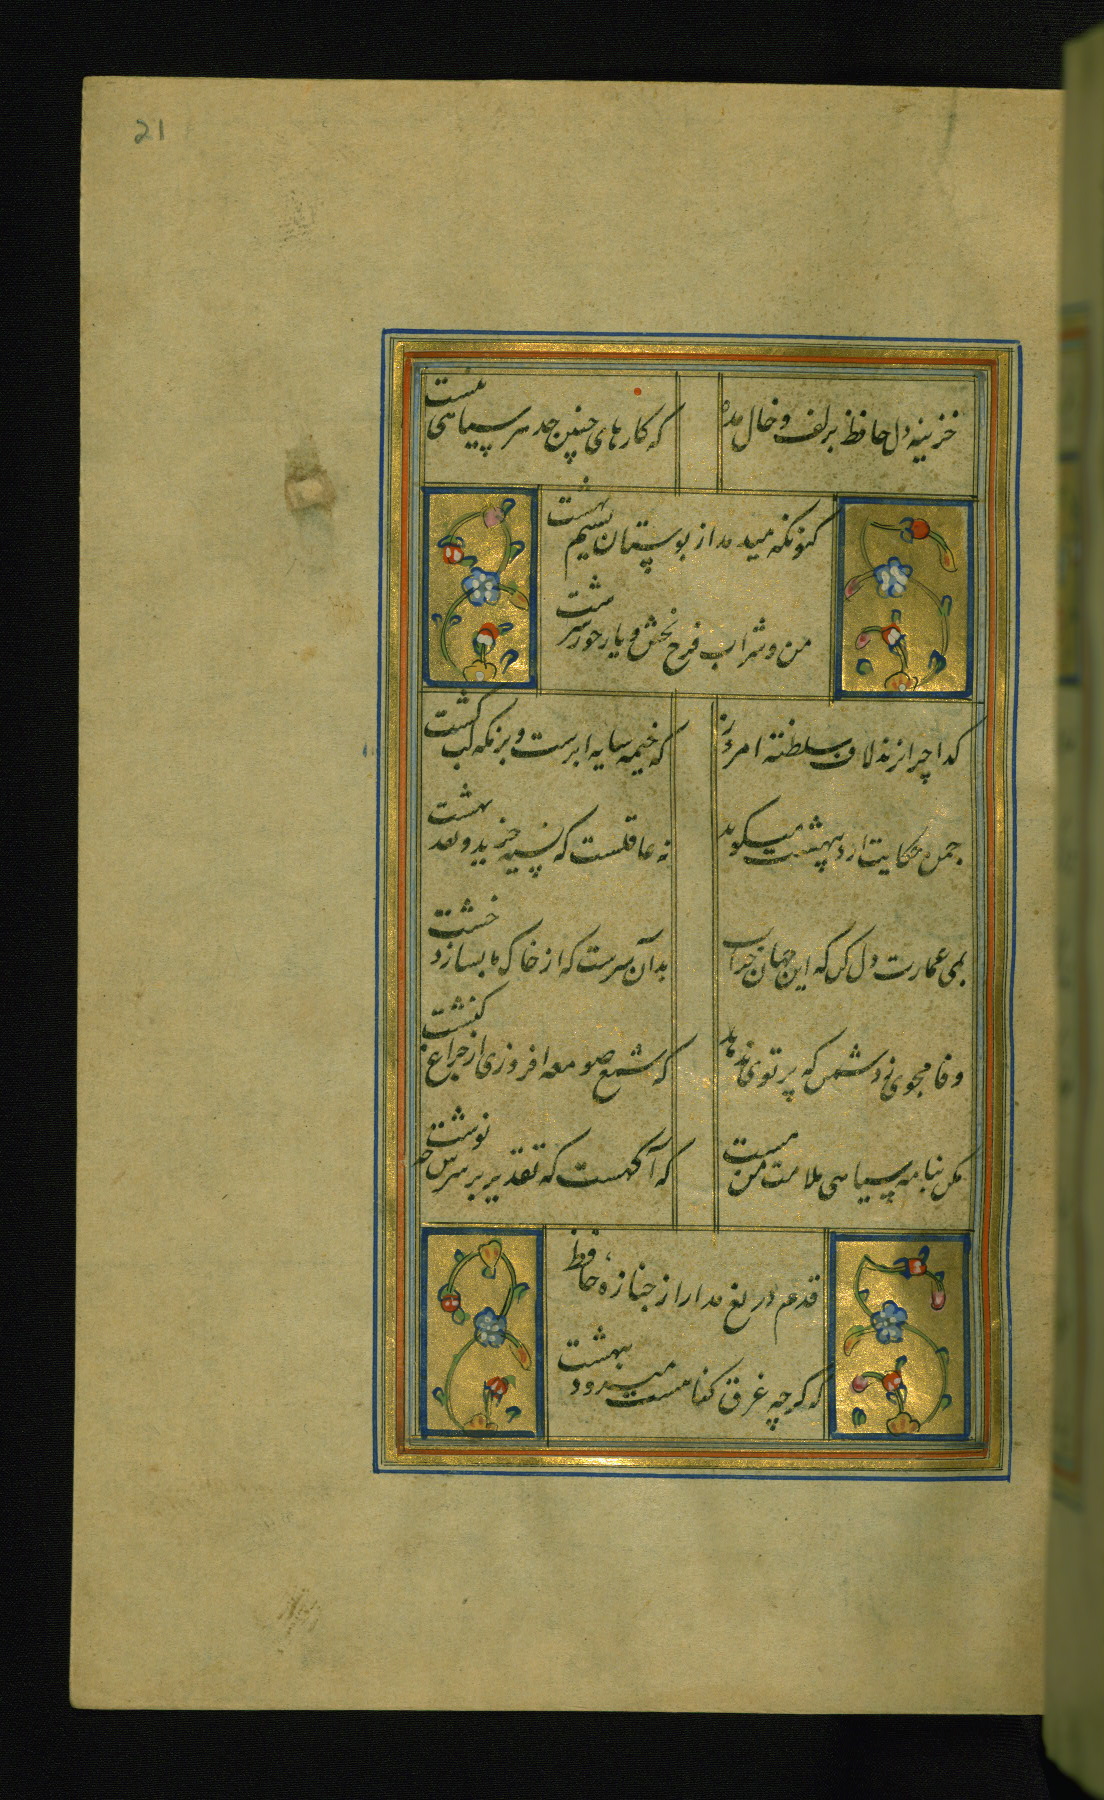 21
خزینه دل حافظ بزلف و خال مده
که کارهای چنین حد هر سیاهی نیست
کنونکه میدمد از بوستان نسیم بهشت
من و شراب فرح بخش و یار حور سرشت
کدا چرا نزند لاف سلطنت امروز
که خیمه سایه ابرست و بزمکه لب کشت
چمن حکایت اردیبهشت میکوید
نه عاقلست که نسیه خرید و نقد بهشت
بمی عمارت دل کن که این جهان خراب
بدان سرست که از خاک ما بسازد خشت
وفا مجوی ز دشمن که پرتوی ندهد
که شمع صومعه افروزی از چراغ کنشت
مکن بنامه سیاهی ملامت من مست
که آکهست که تقدیر بر سرش چه نوشت
قدم دریغ مدار از جنازه حافظ
که کرچه غرق کناهست میرود ببهشت